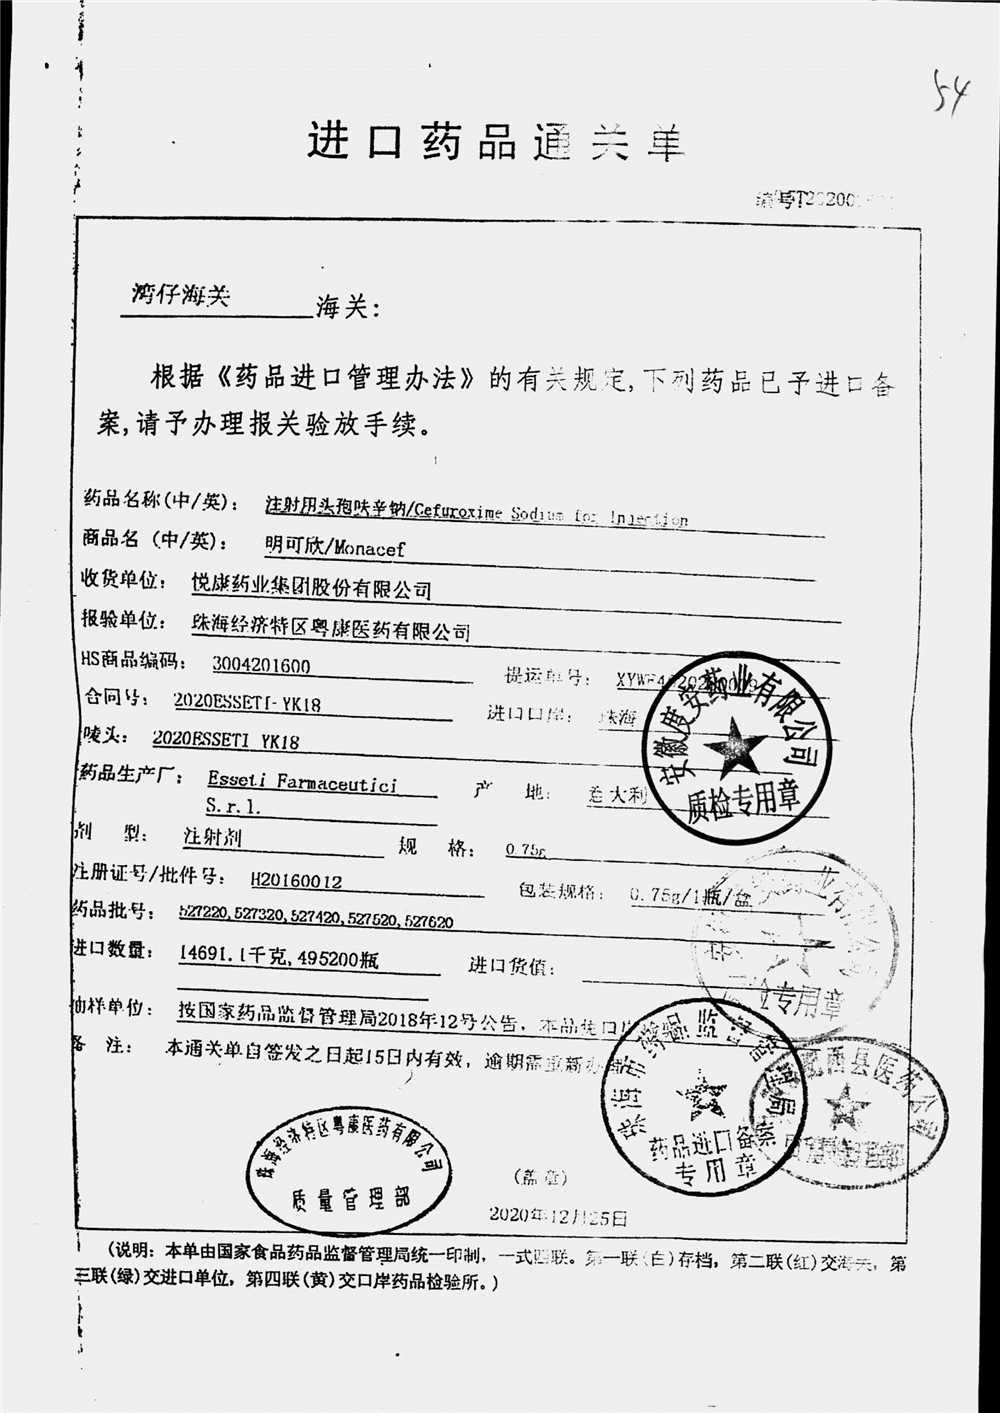 54
进口药品通关单
编号
湾仔海关 海关:
根据《药品进口管理办法》的有关规定,下列药品已予进口备
案,请予办理报关验放手续。
药品名称(中/英): 注射用头孢呋辛钠/Cefuroxime Sodium for Injection
商品名 (中/英): 明可欣/Monacef
收货单位: 悦康药业集团股份有限公司
报验单位: 珠海经济特区粤康医药有限公司
HS商品编码: 3004201600 提运单号:
合同号: 2020ESSETI-YK18 进口口岸: 珠海
唛头: 2020ESSETI YK18
药品生产厂: Esseti Farmaceutici 产 地: 意大利
S.r.l.
剂 型: 注射剂 规 格: 0.75g
注册证号/批件号: H20160012 包装规格: 0.75g/1瓶/盒
药品批号: 527220,527320,527420,527520,527620
进口数量: 14691.1千克,495200瓶 进口货值:
抽样单位: 按国家药品监督管理局2018年12号公告, 本品进口
备 注: 本通关单自签发之日起15日内有效, 逾期需重新办
安徽度安药业有限公司
质检专用章
业有限公司
检专用章
珠海市 药品监
药品进口备案
专用章
肥西县医药公司
珠海经济特区粤康医药有限公司
质量管理部
(盖章)
2020年12月25日
(说明: 本单由国家食品药品监督管理局统一印制, 一式四联。第一联(白)存档, 第二联(红)交海关, 第
三联(绿)交进口单位, 第四联(黄)交口岸药品检验所。)